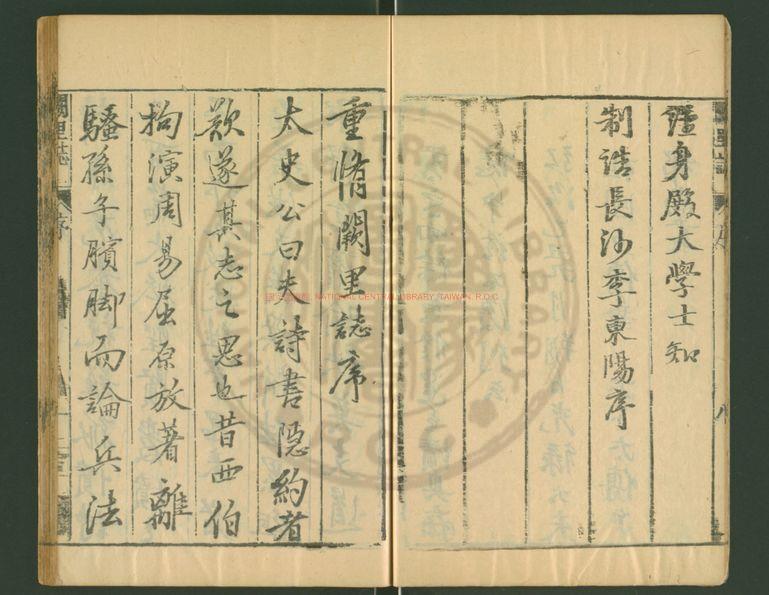 謹身殿大學士知
制誥長沙李東陽序
重脩闕里誌序
太史公曰夫詩書隱約者
欲遂其志之思也昔西伯
拘演周易屈原放著離
騷孫子臏脚而論兵法
闕里誌
序
NATIONAL CENTRAL LIBRARY, TAIWAN, R.O.C